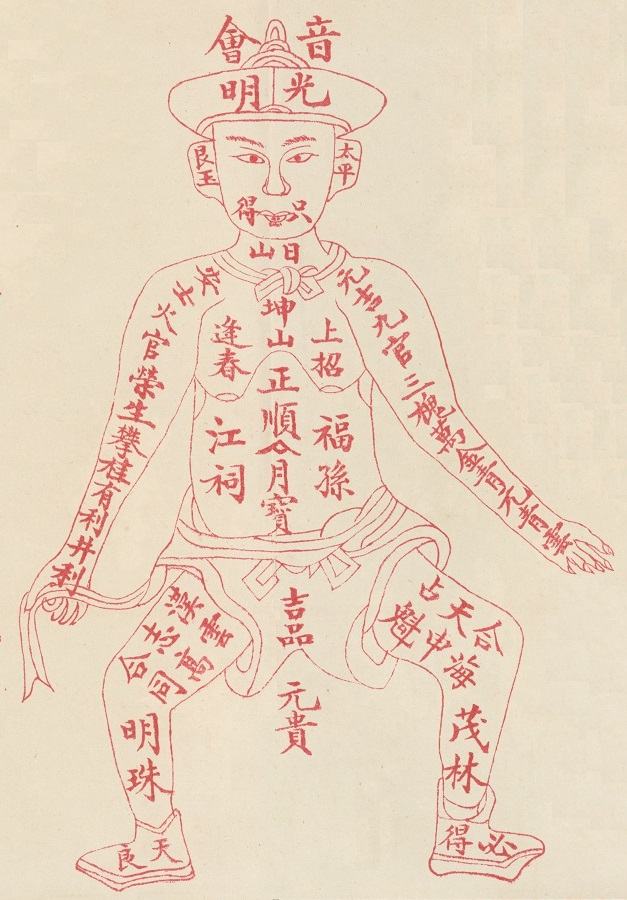 音會
光明
太平
良玉
只得
日山
元吉九官三槐萬金青元青雲
安士火官榮生攀桂有利井利
坤山
上招
逢春
正順
福孫
江祠
月寶
吉品
元貴
合海
天申
占魁
漢雲
志高
合同
茂林
明珠
必得
天良